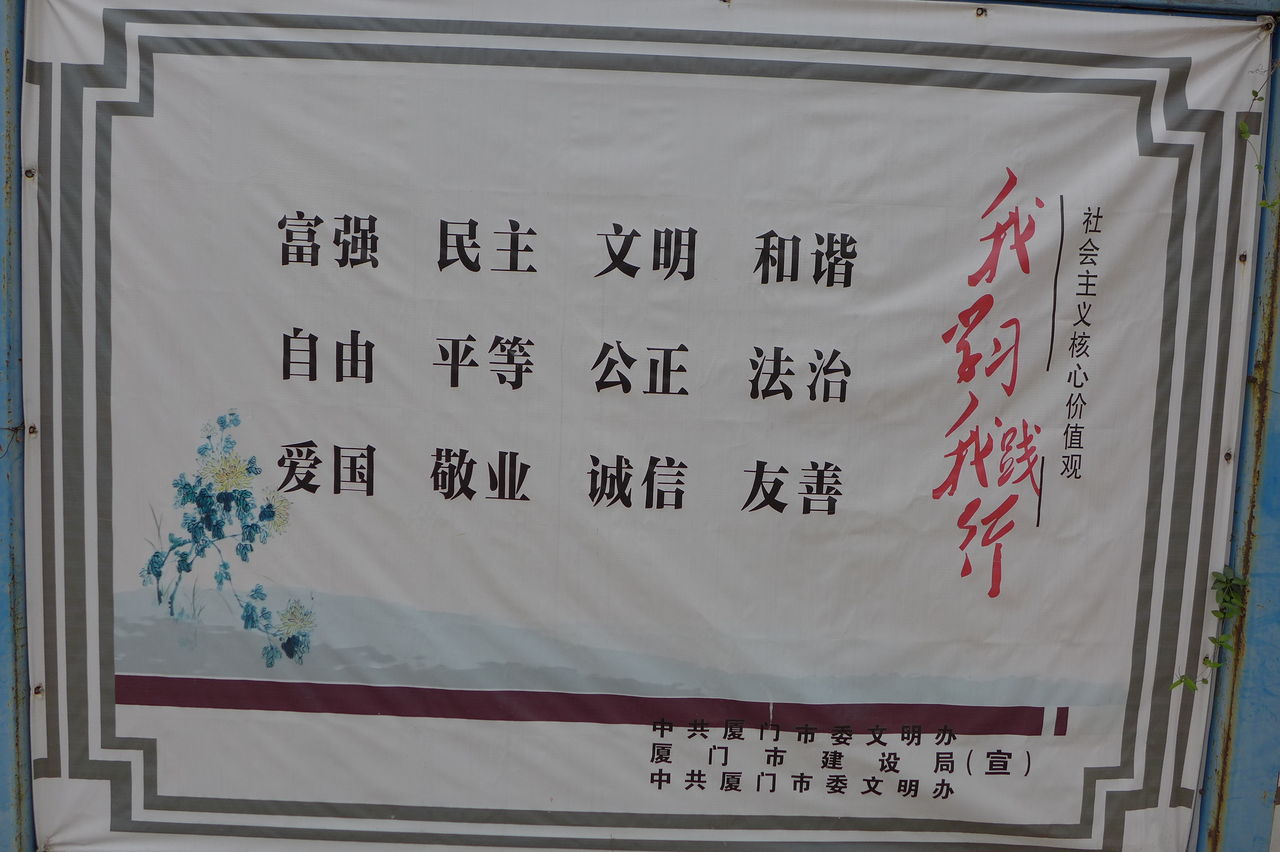 社会主义核心价值观
我学习我践行
富强 民主 文明 和谐
自由 平等 公正 法治
爱国 敬业 诚信 友善
中共厦门市委文明办
厦门市建设局(宣)
中共厦门市委文明办